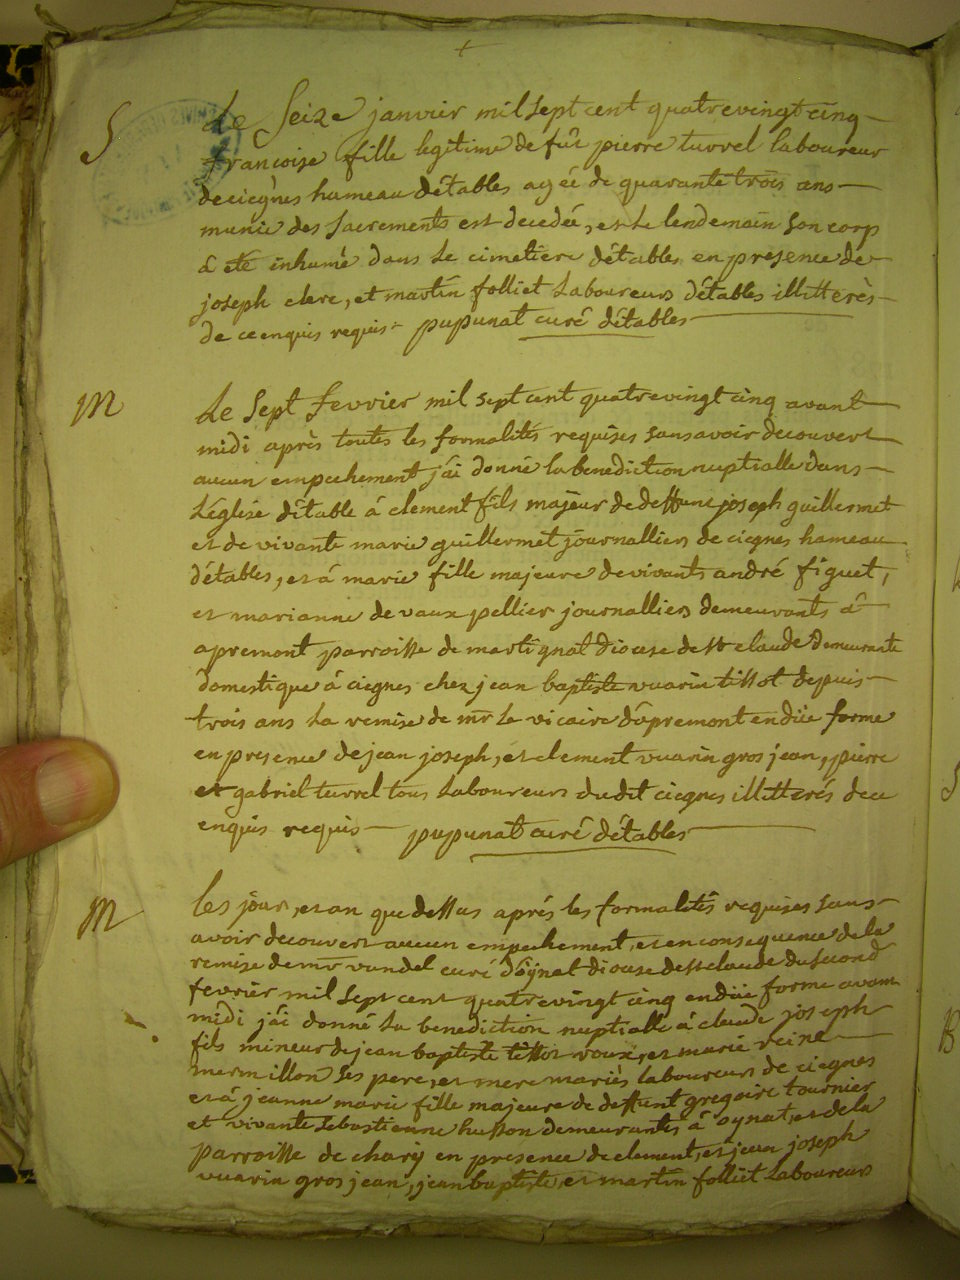 +
S
Le Seize janvier mil sept cent quatre vingt cinq
francoise fille legitime de fût pierre turrel laboureur
de ciegnes hameau détables agée de quarante trois ans
munie des sacrements est decedée, et le lendemain son corp
a eté inhumé dans le cimetiere détables en presence de
joseph clerc, et martin folliet Laboureurs détables illitterés
de ce enquis requis pupunat curé détables
M
Le Sept fevrier mil sept cent quatre vingt cinq avant
midi après toutes les formalités requises sans avoir decouvert
aucun empechement j'ai donné la benediction nuptialle dans
L'églize détable á clement fils majeur de deffunt joseph guillermet
et de vivante marie guillermet journalliers de ciegnes hameau
détables, et á marie fille majeure de vivants andré figuet,
et marianne de vaux pellier journalliers demeurants á
apremont parroisse de martignat diocese de st claude demeurante
domestique á ciegnes chez jean baptiste vuarin tissot depuis
trois ans la remise de mr le vicaire dápremont en düe forme
en presence de jean joseph, et clement vuarin gros jean, pierre
et gabriel turrel tous Laboureurs dudit ciegnes illitterés de ce
enquis requis pupunat curé détables
M
Les jour, et an que dessus aprés les formalités requises sans
avoir decouvert aucun empechement, et en consequence de la
remise de mr vandel curé dóÿnat diocese de st claude du second
fevrier mil sept cent quatre vingt cinq en düe forme avant
midi j'ai donné la benediction nuptialle á claude joseph
fils mineur de jean baptiste tissot roux, et marie reine
mermillon ses pere, et mere mariés laboureurs de ciegnes
et á jeanne marie fille majeure de deffunt gregoire tournier
et vivante sebastienne husson demeurantes á oynat, et de la
parroisse de charÿ en presence de clement, et jean joseph
vuarin gros jean, jean baptiste, et martin folliet Laboureurs